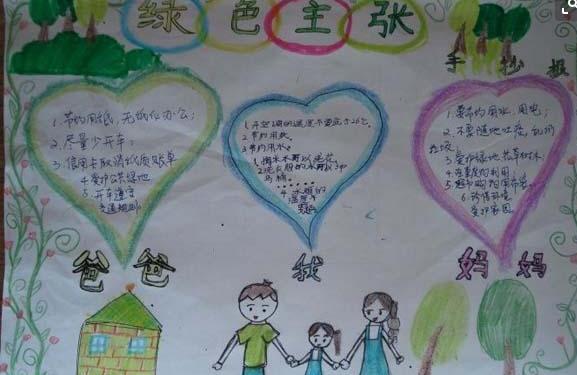 绿色主张
手抄报
1.节约用纸,无纸化办公;
2.尽量少开车;
3.信用卡取消纸质账单
4.爱护公共绿地
5.开车遵守
交通规则。
1.开空调的温度不要低于26℃
2.节约用纸
3.节约用水
1.淘米水可以浇花
2.洗衣服的水可以冲
马桶
1.要节约用水,用电;
2.不要随地吐痰,乱扔
垃圾
3.爱护绿地,花草树木
4.重复利用
5.超市购物用布袋
6.珍惜环境
爱护家园。
爸爸
我
妈妈